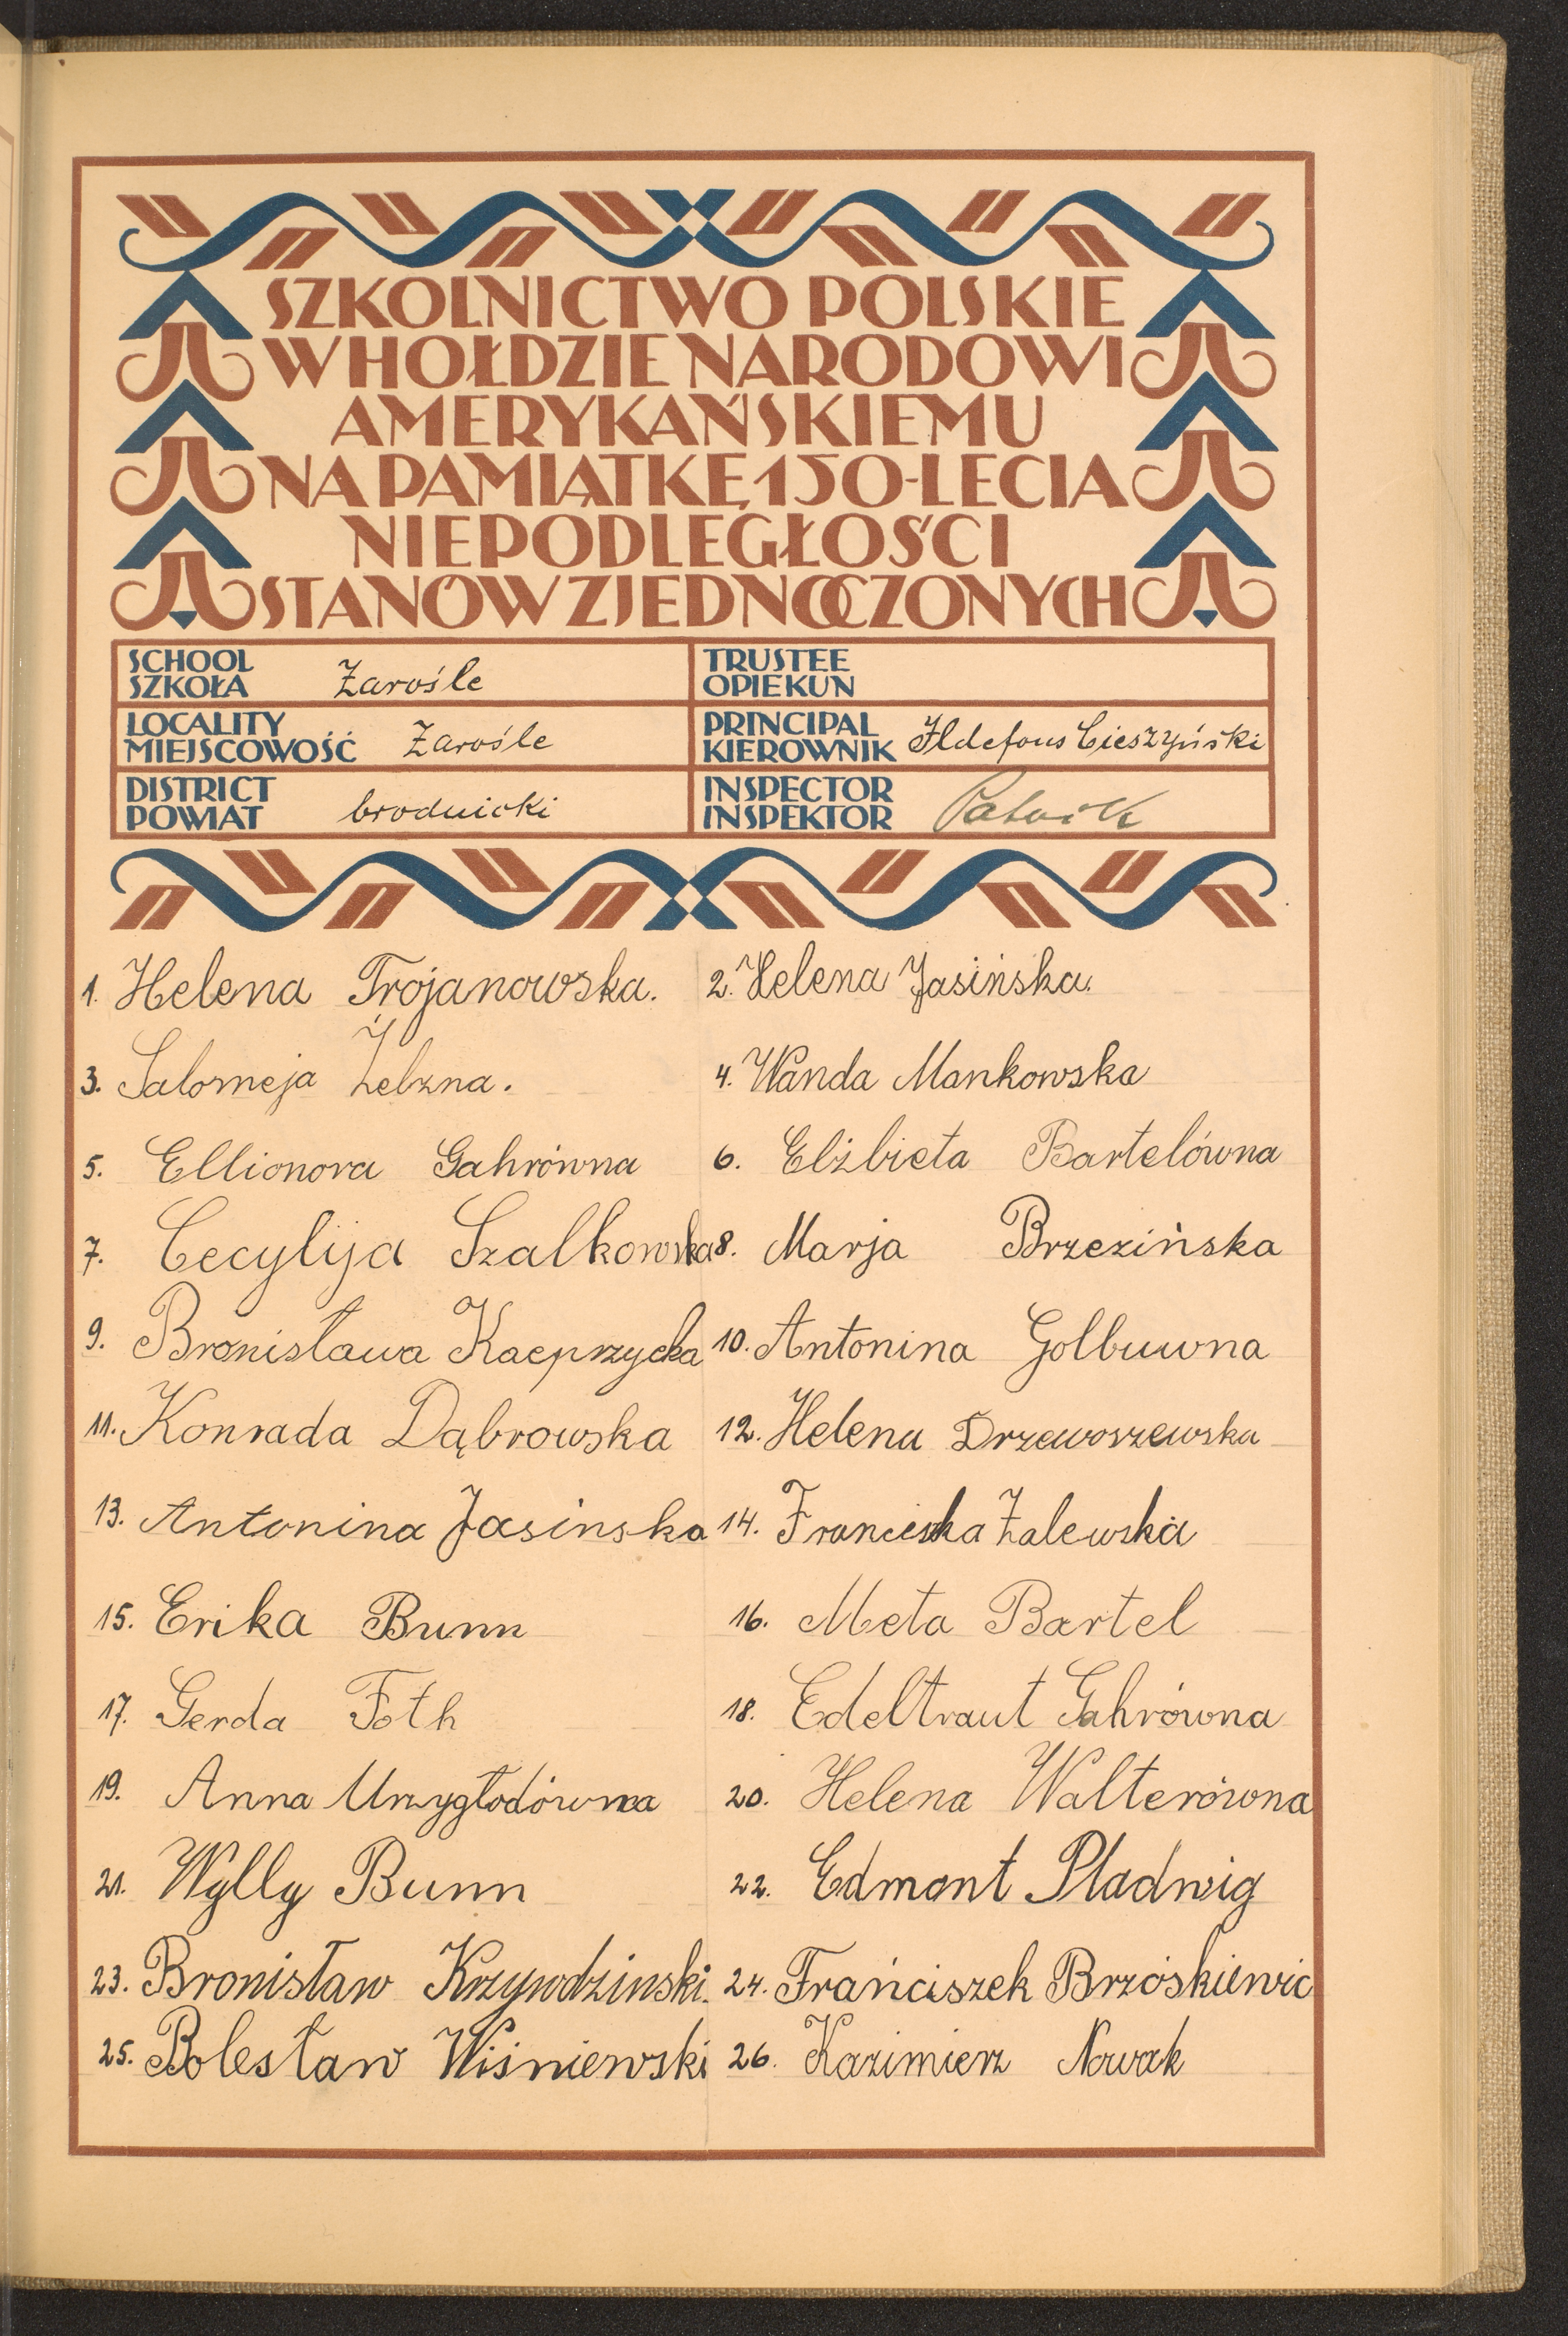 SZKOLNICTWO POLSKIE
W HOŁDZIE NARODOWI
AMERYKAŃSKIEMU
NA PAMIĄTKĘ 150-LECIA
NIEPODLEGŁOŚCI
STANÓW ZJEDNOCZONYCH
SCHOOL
SZKOŁA Zarośle
TRUSTEE
OPIEKUN
LOCALITY
MIEJSCOWOŚĆ Zarośle
PRINCIPAL
KIEROWNIK Ildefons Cieszyński
DISTRICT
POWIAT brodnicki
INSPECTOR
INSPEKTOR
1. Helena Trojanowska. 2. Helena Jasińska.
3. Salomeja Żelzna. 4. Wanda Mankowska
5. Ellionora Gahrówna 6. Elżbieta Bartelówna
7. Cecylija Szalkowska 8. Marja Brzezińska
9. Bronisława Kacprzycka 10. Antonina Golbuwna
11. Konrada Dąbrowska 12. Helena Drzewoszewska
13. Antonina Jasinska 14. Franciszka Zalewska
15. Erika Bunn 16. Meta Bartel
17. Gerda Foth 18. Edeltraut Gahrówna
19. Anna Urzygłodówna 20. Helena Walterówna
21. Wylly Bunn 22. Edmont Pladwig
23. Bronisław Krzywdzinski. 24. Frańciszek Brzóskiewic
25. Bolesław Wiśniewski 26. Kazimierz Nowak